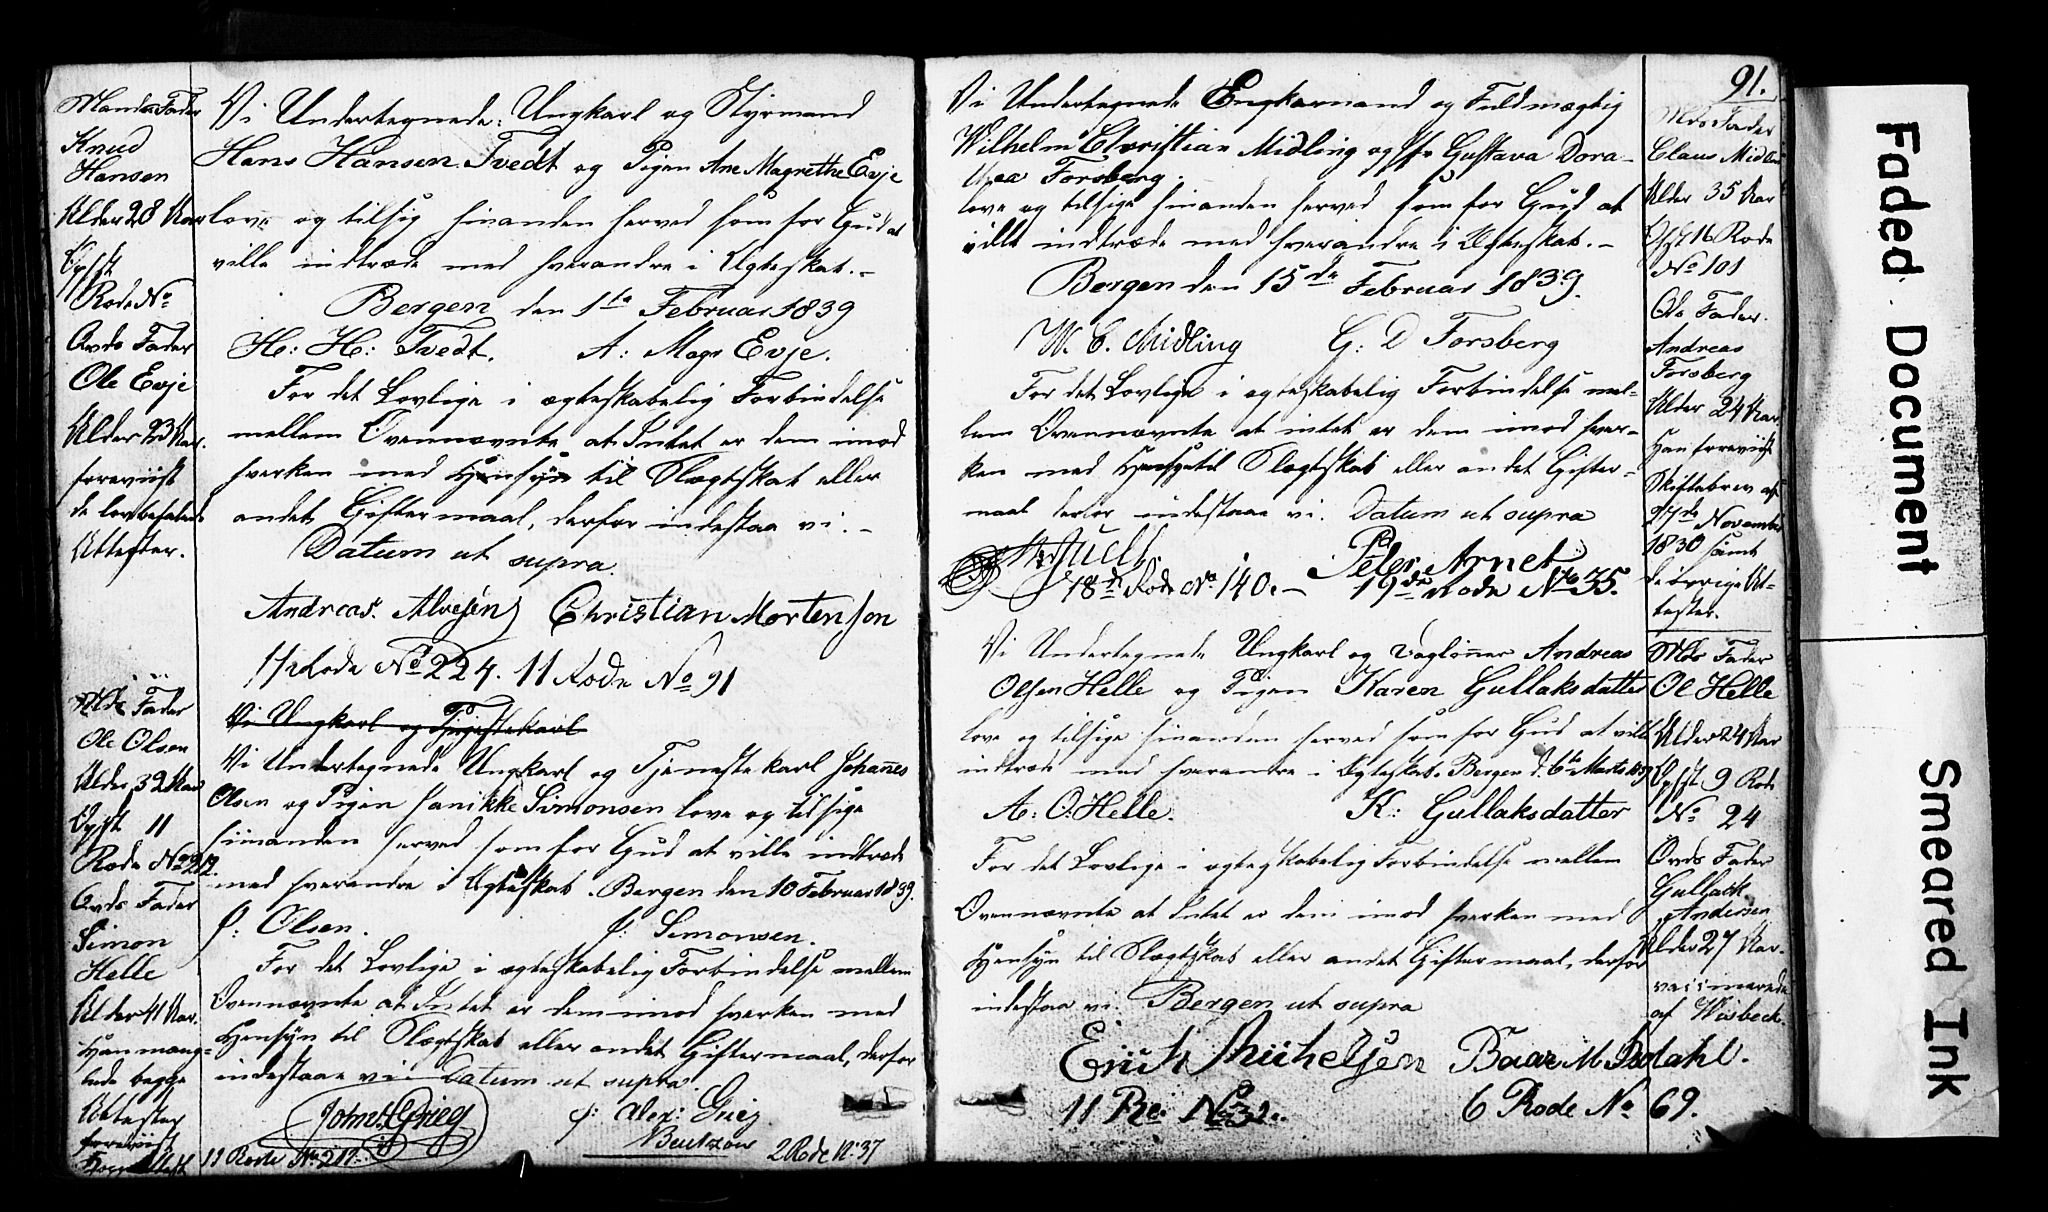 Mands Fader
Knud
Hansen
Alder 28 Aar
Opst
Rode No
Qvds Fader
Ole Evje
Alder 23 Aar.
foreviist
de lovbefalede
Attester.
Vi Undertegnede, Ungkarl og Styrmand
Hans Hansen Tvedt og Pigen Ane Magrethe Evje
love og tilsig hinanden herved som for Gud at
ville indtræde med hverandre i Ægteskab. –
Bergen den 1te Februar 1839
H: H: Tvedt. A: Mags Evje.
For det Lovlige i ægteskabelig Forbindelse
mellem Ovennævnte at Intet er dem imod
hverken med Hensyn til Slægtskab eller
andet Giftermaal, derfor indestaa vi. –
Datum ut supra.
Andreas Alvesen Christian Mortenson
11 Rode No 224. 11 Rode No 91
Mds Fader
Ole Olsen
Alder 32 Aar
Opst 11
Rode No 217.
Qvds Fader
Simon
Helle
Alder 41 Aar.
Han mang-
lede begge
Attester
foreviist
Vi Ungkarl og Tjenestekarl
Vi Undertegnede Ungkarl og Tjenestekarl Johannes
Olsen og Pigen Janikke Simonsen love og tilsige
hinanden herved som for Gud at ville indtræde
med hverandre i Ægteskab. Bergen den 10 Februar 1839.
J: Olsen. J: Simonsen.
For det Lovlige i ægteskabelig Forbindelse mellem
Ovennævnte at Intet er dem imod hverken med
Hensyn til Slægtskab eller andet Giftermaal, derfor
indestaae vi. Datum ut supra.
John Grieg J: Alex: Grieg
Beutzow
11 Rode No 217. 2 Rode N: 37
91.
Vi Undertegnede Enkemand og Fuldmægtig
Wilhelm Christian Midling og Jfr Gustava Dora-
thea Forsberg.
love og tilsige hinanden herved som for Gud at
ville indtræde med hverandre i Ægteskab. –
Bergen den 15de Februar 1839.
W. C. Midling G: D Forsberg
For det Lovlige i ægteskabelig Forbindelse mel-
lem Ovennævnte at intet er dem imod hver-
ken med Hensyn til Slægtskab eller andet Gifter-
maal derfor indestaae vi. Datum ut supra
Peter Arnet
18de Rode No 140. – 19de Rode No 35.
Mds Fader
Claus Midling
Alder 35 Aar
Opst 16 Rode
No 101
Qds Fader.
Andreas
Forsberg
Alder 24 Aar.
Han foreviist
Skiftebrev af
27de November
1830 samt
de øvrige At-
tester.
Vi Undertegnede Ungkarl og Dagløner Andreas
Olsen Helle og Pigen Karen Gullaksdatter
love og tilsige hinanden herved som for Gud at ville
indtræde med hverandre i Ægteskab. Bergen d. 6te Marts 1839
A: O: Helle. K: Gullaksdatter
For det Lovlige i ægteskabelig Forbindelse mellem
Ovennævnte at Intet er dem imod hverken med
Hensyn til Slægtskab eller andet Giftermaal, derfor
indestaa vi. Bergen ut supra
Erich Michelsen Baar M Dodahl.
11 Re. No 32. 6 Rode No 69.
Mds Fader
Ol Helle
Alder 24 Aar
Opst. 9 Rode
No 24
Qvds Fader
Gullack
Andersen
Alder 27 Aar.
vaccinerede
af Wisbech.
Faded Document
Smeared Ink